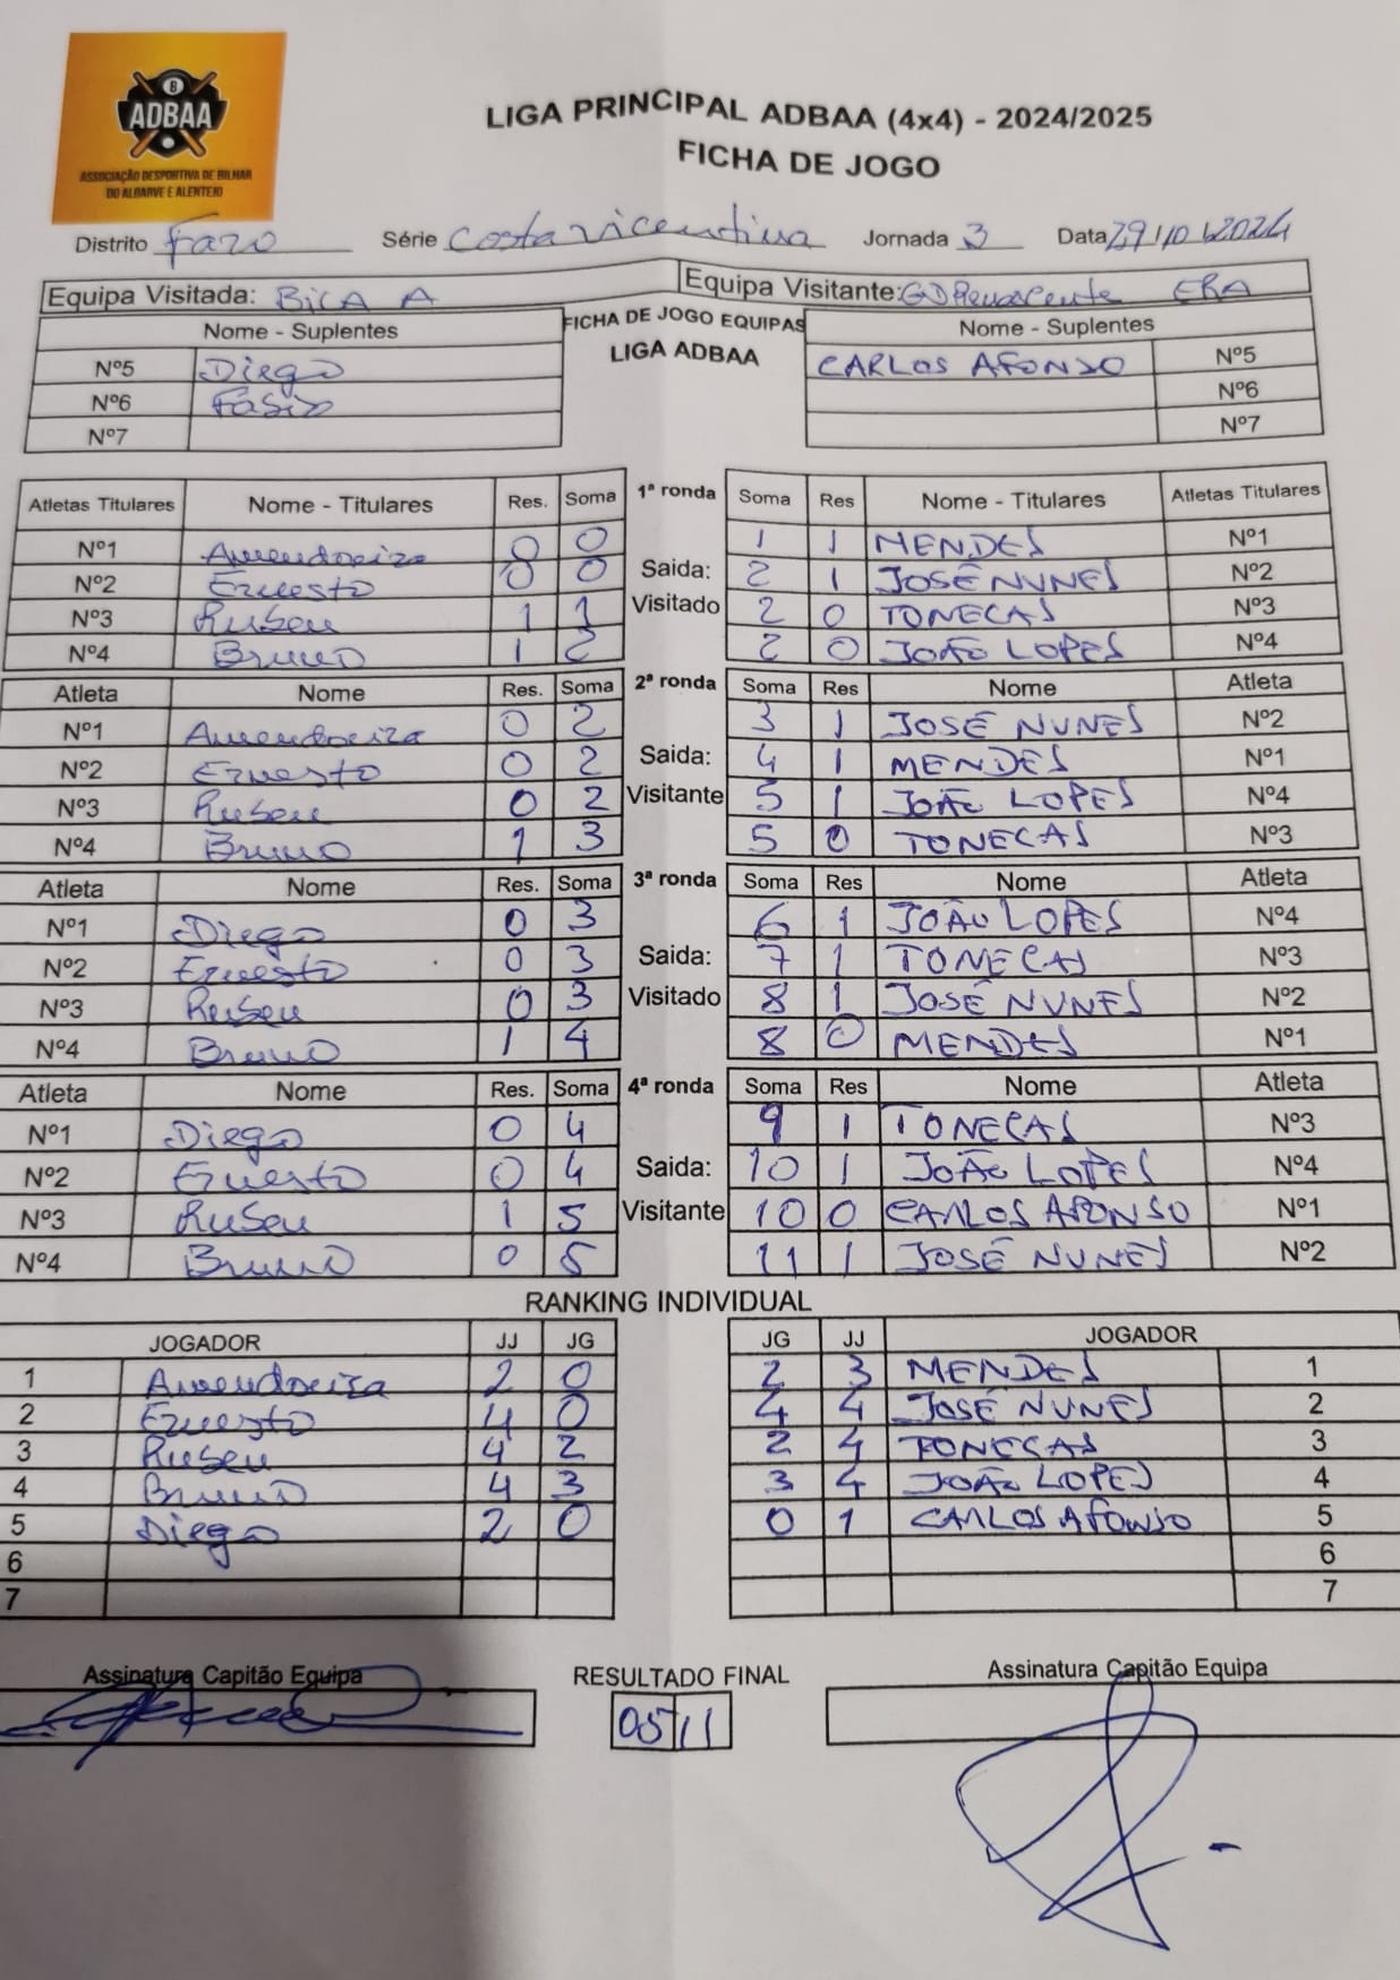 8
ADBAA
ASSOCIAÇÃO DESPORTIVA DE BILHAR
DO ALGARVE E ALENTEJO
LIGA PRINCIPAL ADBAA (4x4) - 2024/2025
FICHA DE JOGO
Distrito Faro Série Costa Vicentina Jornada 3 Data 29/10/2024
Equipa Visitada: BICA A Equipa Visitante: GD Renascente ERA
Nome - Suplentes FICHA DE JOGO EQUIPAS Nome - Suplentes
LIGA ADBAA
Nº5 Diego CARLOS AFONSO Nº5
Nº6 Nº6
Nº7 Nº7
Atletas Titulares Nome - Titulares Res. Soma 1ª ronda Soma Res Nome - Titulares Atletas Titulares
Nº1 Amendoeira 0 0 1 1 MENDES Nº1
Nº2 Ernesto 0 0 Saida: 2 1 JOSÉ NUNES Nº2
Nº3 Ruben 1 1 Visitado 2 0 TONECAS Nº3
Nº4 Bruno 1 2 2 0 JOÃO LOPES Nº4
Atleta Nome Res. Soma 2ª ronda Soma Res Nome Atleta
Nº1 Amendoeira 0 2 3 1 JOSÉ NUNES Nº2
Nº2 Ernesto 0 2 Saida: 4 1 MENDES Nº1
Nº3 Ruben 0 2 Visitante 5 1 JOÃO LOPES Nº4
Nº4 Bruno 1 3 5 0 TONECAS Nº3
Atleta Nome Res. Soma 3ª ronda Soma Res Nome Atleta
Nº1 Diego 0 3 6 1 JOÃO LOPES Nº4
Nº2 Ernesto 0 3 Saida: 7 1 TONECAS Nº3
Nº3 Ruben 0 3 Visitado 8 1 JOSÉ NUNES Nº2
Nº4 Bruno 1 4 8 0 MENDES Nº1
Atleta Nome Res. Soma 4ª ronda Soma Res Nome Atleta
Nº1 Diego 0 4 9 1 TONECAS Nº3
Nº2 Ernesto 0 4 Saida: 10 1 JOÃO LOPES Nº4
Nº3 Ruben 1 5 Visitante 10 0 CARLOS AFONSO Nº1
Nº4 Bruno 0 5 11 1 JOSÉ NUNES Nº2
RANKING INDIVIDUAL
JOGADOR JJ JG JG JJ JOGADOR
1 Amendoeira 2 0 2 3 MENDES 1
2 Ernesto 4 0 4 4 JOSÉ NUNES 2
3 Ruben 4 2 2 4 TONECAS 3
4 Bruno 4 3 3 4 JOÃO LOPES 4
5 Diego 2 0 0 1 CARLOS AFONSO 5
6 6
7 7
Assinatura Capitão Equipa RESULTADO FINAL Assinatura Capitão Equipa
05 11